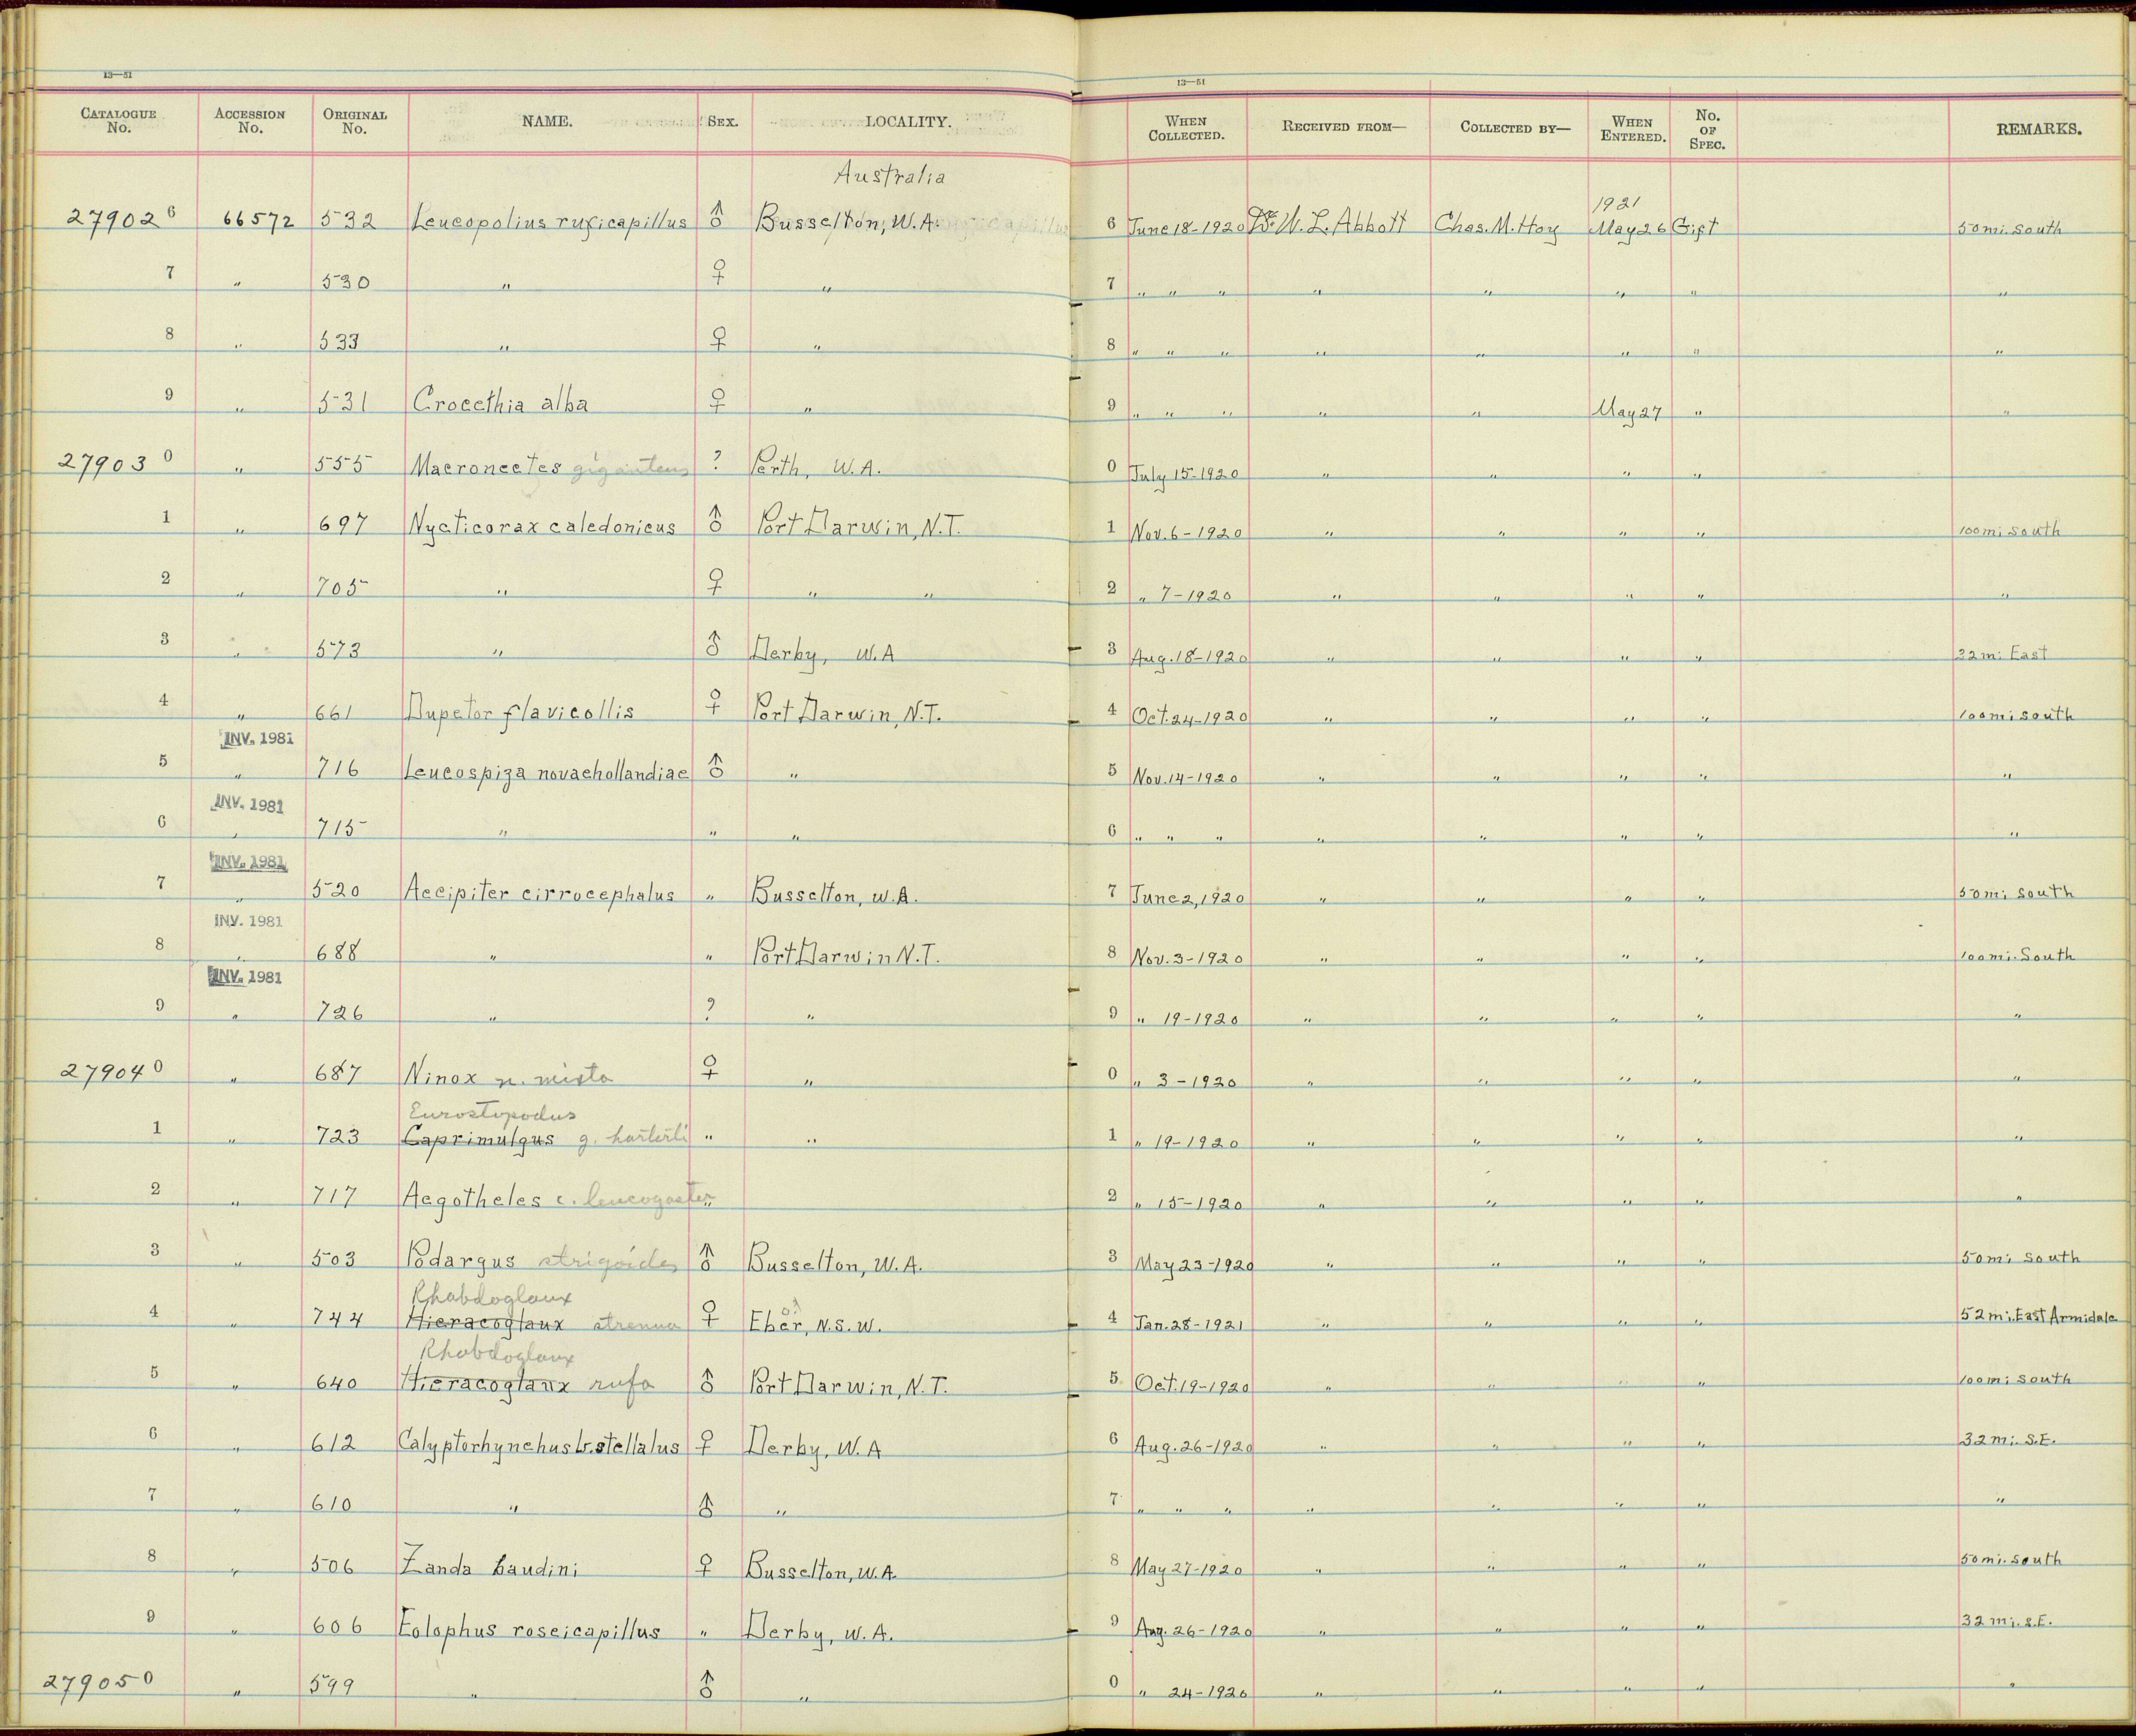 13—51 13—51
CATALOGUE No. ACCESSION No. ORIGINAL No. NAME. SEX. LOCALITY. WHEN COLLECTED. RECEIVED FROM— COLLECTED BY— WHEN ENTERED. No. OF SPEC. REMARKS.
Australia
1921
27902 6 66572 532 Leucopolius ruficapillus ♂ Busselton, W.A. 6 June 18-1920 Dr. W. L. Abbott Chas. M. Hoy May 26 Gift 50 mi. south
7 " 530 " ♀ " 7 " " " " " " " "
8 " 533 " ♀ " 8 " " " " " " " "
9 " 531 Crocethia alba ♀ " 9 " " " " " May 27 " "
27903 0 " 555 Macronectes giganteus ? Perth, W.A. 0 July 15-1920 " " " "
1 " 697 Nycticorax caledonicus ♂ Port Darwin, N.T. 1 Nov. 6-1920 " " " " 100 mi south
2 " 705 " ♀ " " 2 " 7-1920 " " " " "
3 " 573 " ♂ Derby, W.A 3 Aug. 18-1920 " " " " 32 mi East
4 " 661 Dupetor flavicollis ♀ Port Darwin, N.T. 4 Oct. 24-1920 " " " " 100 mi south
INV. 1981
5 " 716 Leucospiza novaehollandiae ♂ " 5 Nov. 14-1920 " " " " "
INV. 1981
6 " 715 " " " 6 " " " " " " " "
INV. 1981
7 " 520 Accipiter cirrocephalus " Busselton, W.A. 7 June 2, 1920 " " " " 50 mi south
INV. 1981
8 " 688 " " Port Darwin N.T. 8 Nov. 3-1920 " " " " 100 mi. South
INV. 1981
9 " 726 " ? " 9 " 19-1920 " " " " "
27904 0 " 687 Ninox n. mixta ♀ " 0 " 3-1920 " " " " "
Eurostopodus
1 " 723 Caprimulgus g. harterti " " 1 " 19-1920 " " " " "
2 " 717 Aegotheles c. leucogaster " 2 " 15-1920 " " " " "
3 " 503 Podargus strigoides ♂ Busselton, W.A. 3 May 23-1920 " " " " 50 mi south
Rhabdoglaux
4 " 744 Hieracoglaux strenua ♀ Eber, N.S.W. 4 Jan. 28-1921 " " " " 52 mi. East Armidale
Rhabdoglaux
5 " 640 Hieracoglaux rufa ♂ Port Darwin, N.T. 5 Oct. 19-1920 " " " " 100 mi south
6 " 612 Calyptorhynchus b. stellatus ♀ Derby, W.A 6 Aug. 26-1920 " " " " 32 mi. S.E.
7 " 610 " ♂ " 7 " " " " " " " "
8 " 506 Zanda baudini ♀ Busselton, W.A. 8 May 27-1920 " " " " 50 mi. south
9 " 606 Eolophus roseicapillus " Derby, W.A. 9 Aug. 26-1920 " " " " 32 mi. S.E.
27905 0 " 599 " ♂ " 0 " 24-1920 " " " " "